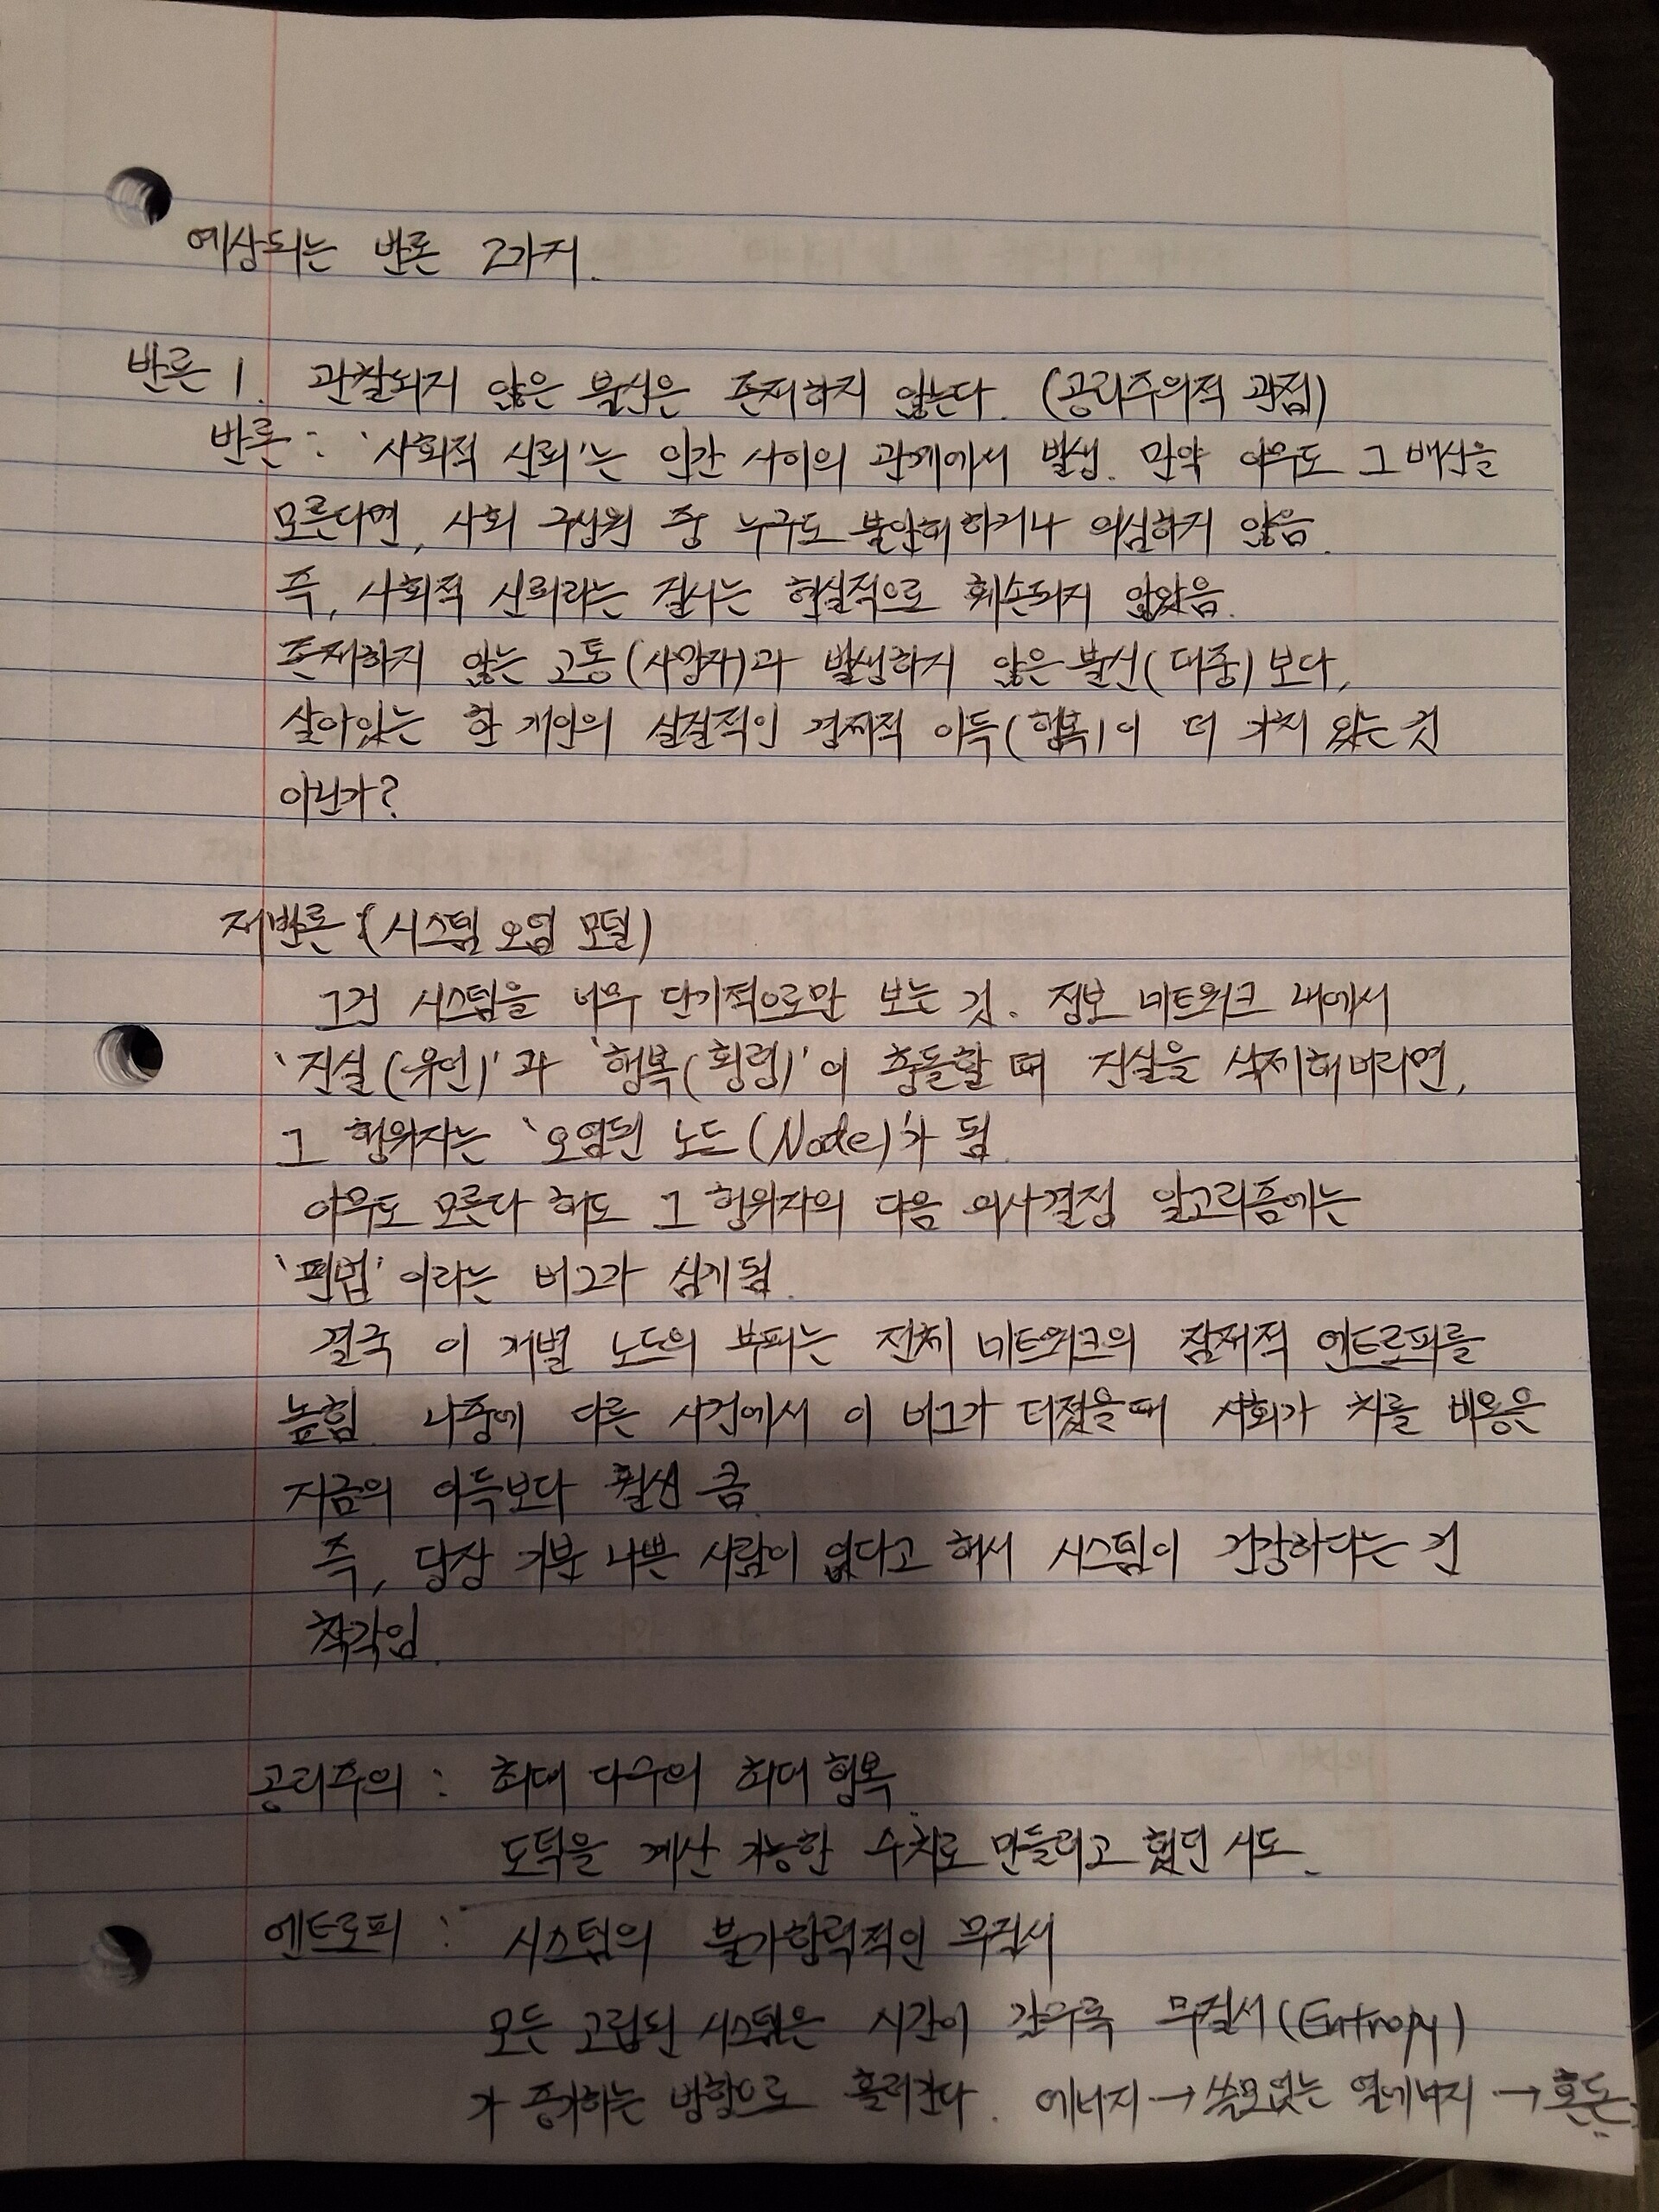 예상되는 반론 2가지.
반론 1. 관찰되지 않은 불신은 존재하지 않는다. (공리주의적 관점)
반론 : '사회적 신뢰'는 인간 사이의 관계에서 발생. 만약 아무도 그 배신을
모른다면, 사회 구성원 중 누구도 불안해하거나 의심하지 않음.
즉, 사회적 신뢰라는 질서는 현실적으로 훼손되지 않았음.
존재하지 않는 고통(사망자)과 발생하지 않은 불신(대중)보다,
살아있는 한 개인의 실질적인 경제적 이득(행복)이 더 가치 있는 것
아닌가?
재반론 : (시스템 오염 모델)
그건 시스템을 너무 단기적으로만 보는 것. 정보 네트워크 내에서
'진실(유언)'과 '행복(횡령)'이 충돌할 때 진실을 삭제해버리면,
그 행위자는 '오염된 노드(Node)'가 됨.
아무도 모른다 해도 그 행위자의 다음 의사결정 알고리즘에는
'편법' 이라는 버그가 심기됨.
결국 이 개별 노드의 부패는 전체 네트워크의 잠재적 엔트로피를
높힘. 나중에 다른 사건에서 이 버그가 터졌을때 사회가 치를 비용은
지금의 이득보다 훨씬 큼.
즉, 당장 기분 나쁜 사람이 없다고 해서 시스템이 건강하다는 건
착각임.
공리주의 : 최대 다수의 최대 행복.
도덕을 계산 가능한 수치로 만들려고 했던 시도.
엔트로피 : 시스템의 불가항력적인 무질서
모든 고립된 시스템은 시간이 갈수록 무질서(Entropy)
가 증가하는 방향으로 흘러간다. 에너지 → 쓸모없는 열에너지 → 혼돈.